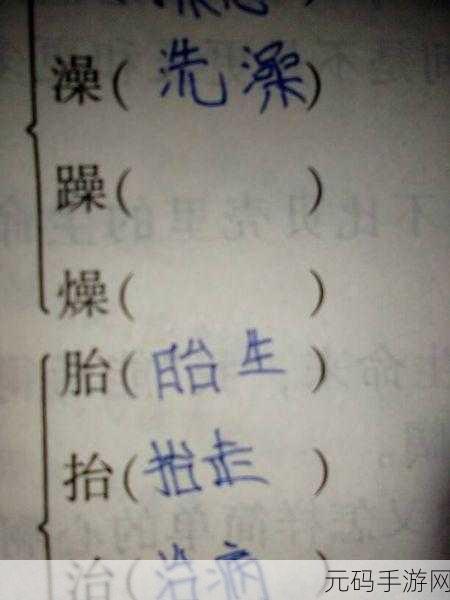 澡(洗澡)
躁( )
燥( )
胎(胎生)
抬(抬走)
治(治病)
元码手游网